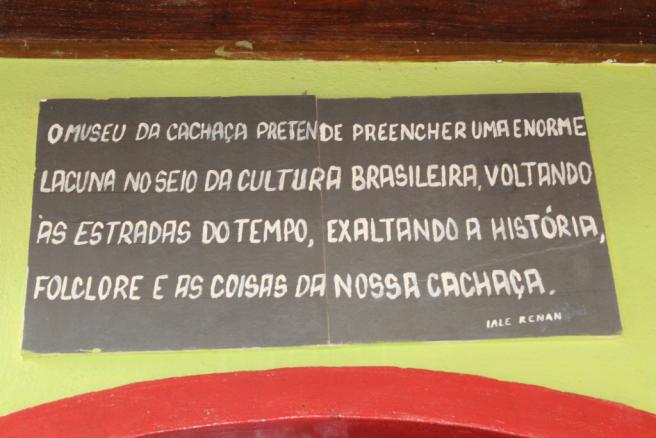 O MUSEU DA CACHAÇA PRETENDE PREENCHER UMA ENORME
LACUNA NO SEIO DA CULTURA BRASILEIRA, VOLTANDO
ÀS ESTRADAS DO TEMPO, EXALTANDO A HISTÓRIA,
FOLCLORE E AS COISAS DA NOSSA CACHAÇA.
IALE RENAN